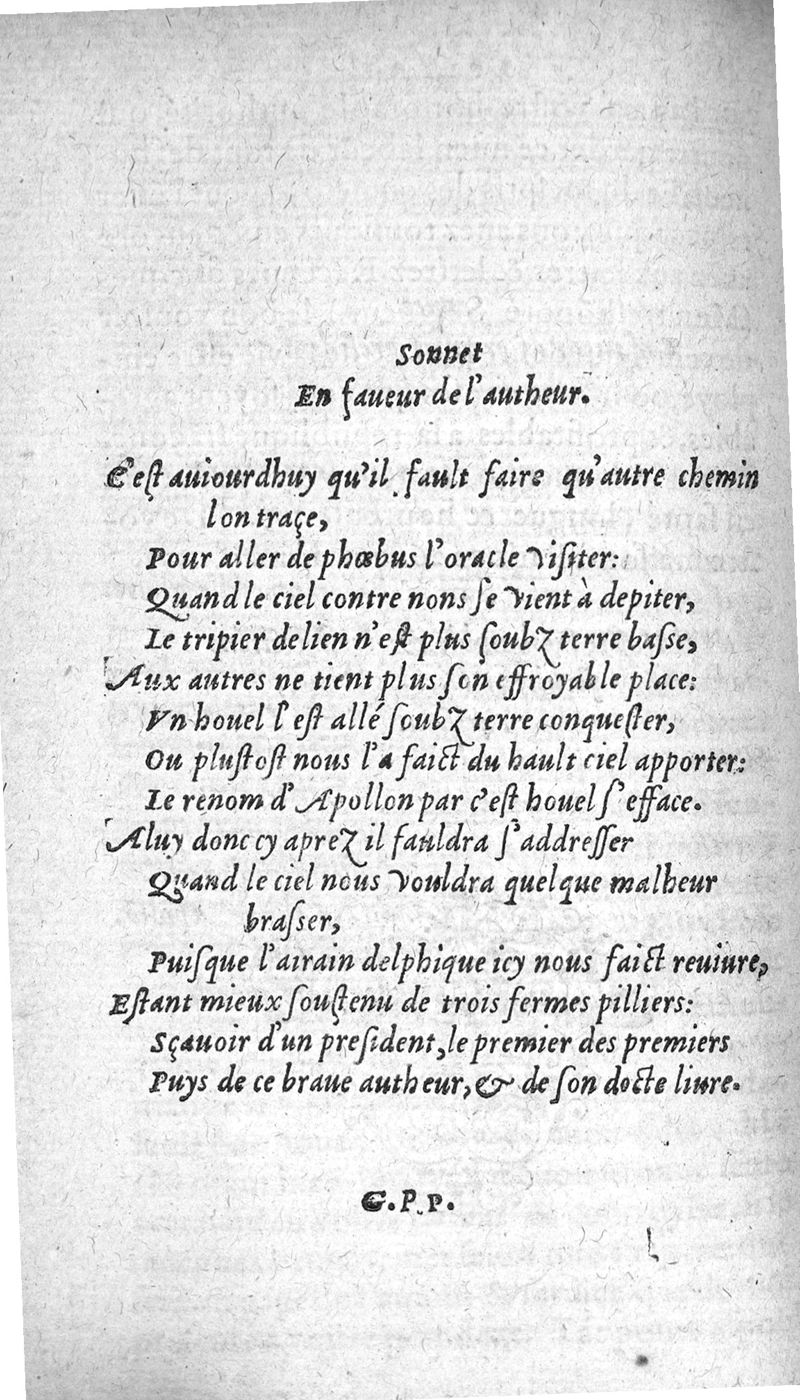 Sonnet
En faueur de l'autheur.
C'eſt auiourdhuy qu'il fault faire qu'autre chemin
lon traçe,
Pour aller de phœbus l'oracle viſiter:
Quand le ciel contre nons ſe vient à depiter,
Le tripier delien n'eſt plus ſoubz terre baſse,
Aux autres ne tient plus ſon effroyable place:
Vn houel l'eſt allé ſoubz terre conqueſter,
Ou pluſtoſt nous l'a faict du hault ciel apporter:
Le renom d'Apollon par c'eſt houel ſ'efface.
Aluy donc cy aprez il fauldra ſ'addreſſer
Quand le ciel nous vouldra quelque malheur
braſser,
Puiſque l'airain delphique icy nous faict reuiure,
Eſtant mieux ſouſtenu de trois fermes pilliers:
Sçauoir d'un preſident, le premier des premiers
Puys de ce braue autheur, & de ſon docte liure.
G.P.p.